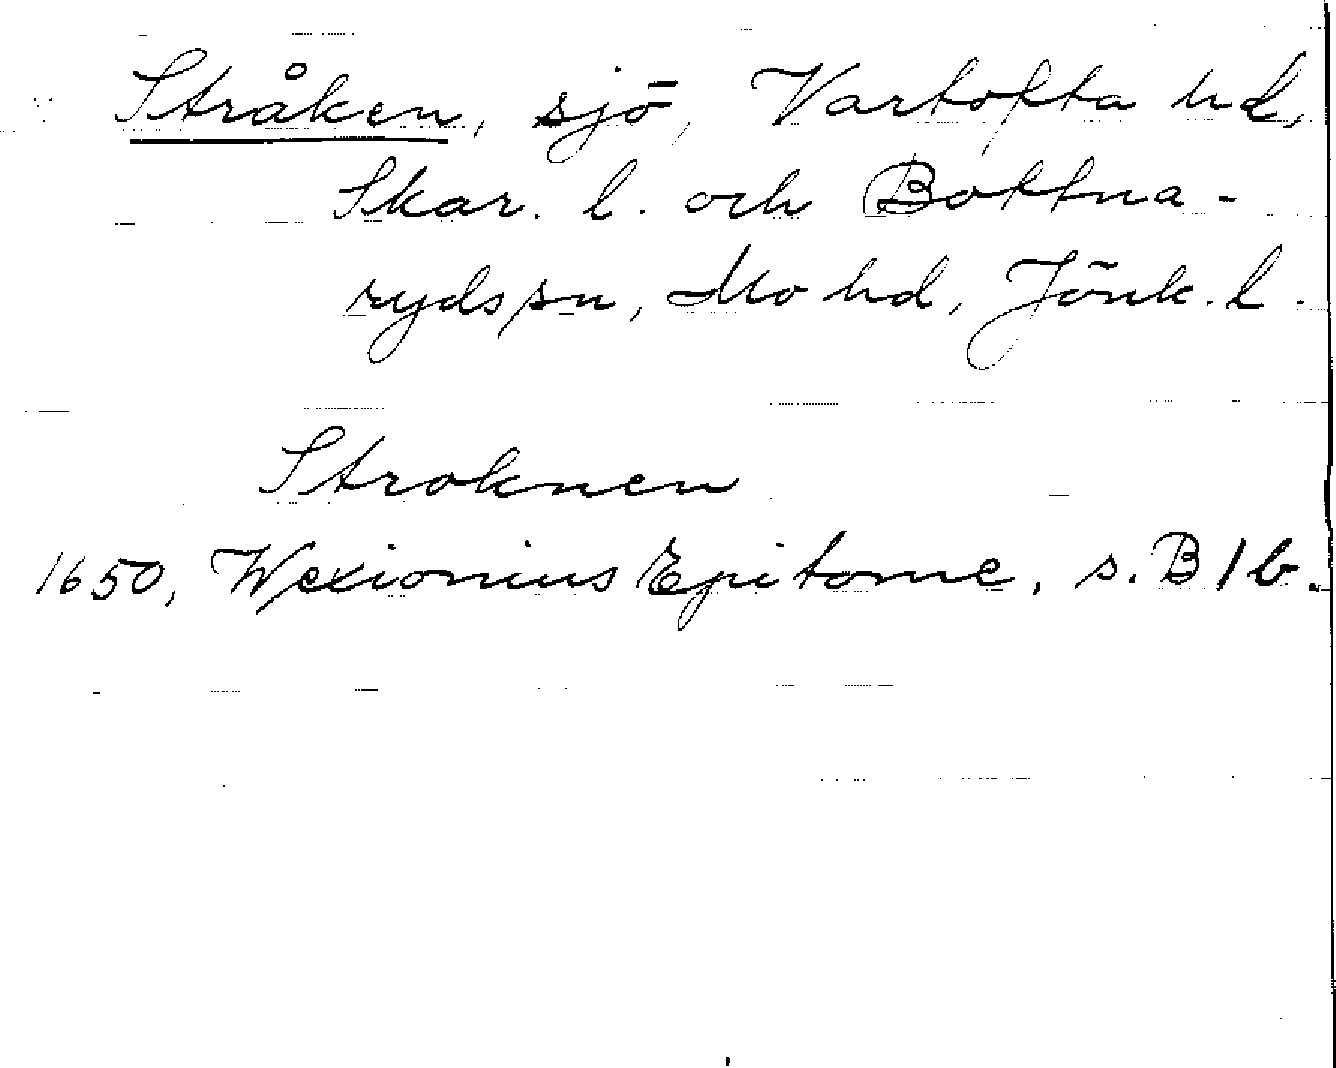 Stråken, sjö, Vartofta hd,
Skar. l. och Bottna-
ryds sn, Mo hd, Jönk. l.
Stroknen
1650, Wexionius Epitome, s. B 1 b.